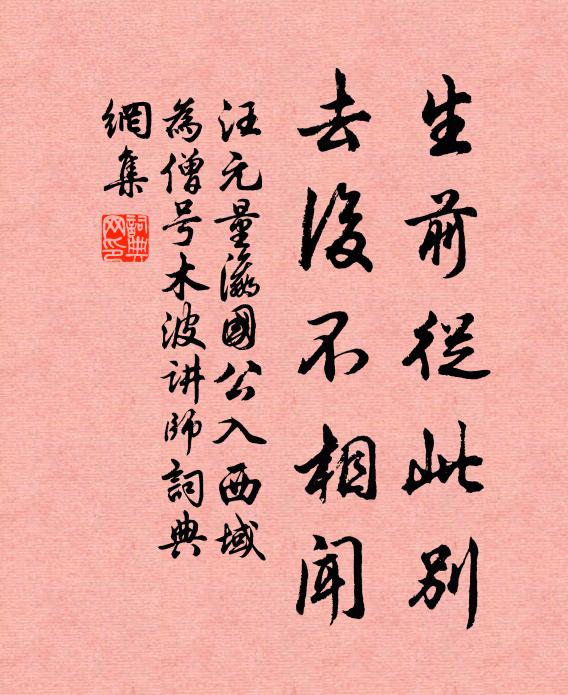 生前從此別
去後不相聞
汪元量瀛國公入西域
為僧号木波讲師詞典
網集
詞典
网印